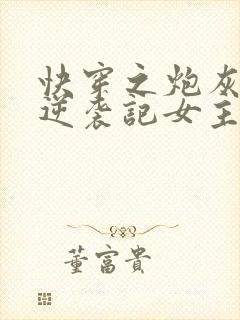 快穿之炮灰
逆袭記女主
董富貴